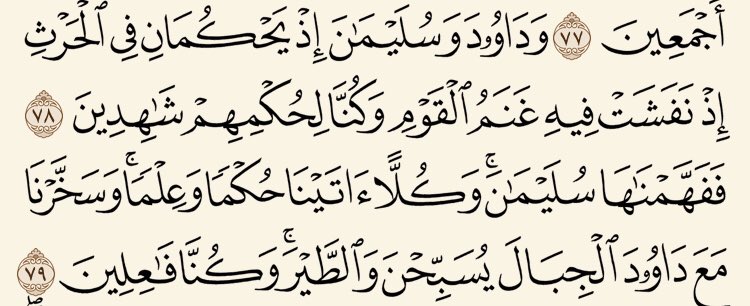 أَجْمَعِينَ ٧٧ وَدَاوُۥدَ وَسُلَيْمَـٰنَ إِذْ يَحْكُمَانِ فِى ٱلْحَرْثِ
إِذْ نَفَشَتْ فِيهِ غَنَمُ ٱلْقَوْمِ وَكُنَّا لِحُكْمِهِمْ شَـٰهِدِينَ ٧٨
فَفَهَّمْنَـٰهَا سُلَيْمَـٰنَ ۚ وَكُلًّا ءَاتَيْنَا حُكْمًا وَعِلْمًا ۚ وَسَخَّرْنَا
مَعَ دَاوُۥدَ ٱلْجِبَالَ يُسَبِّحْنَ وَٱلطَّيْرَ ۚ وَكُنَّا فَـٰعِلِينَ ٧٩